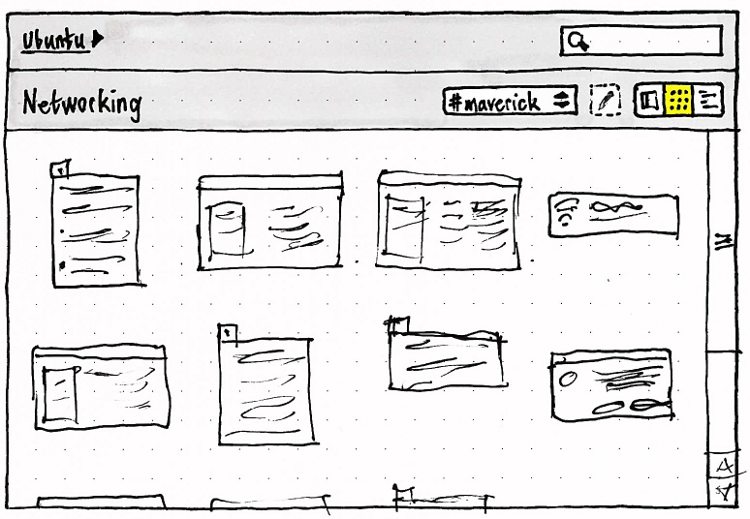 Ubuntu
Networking
#maverick